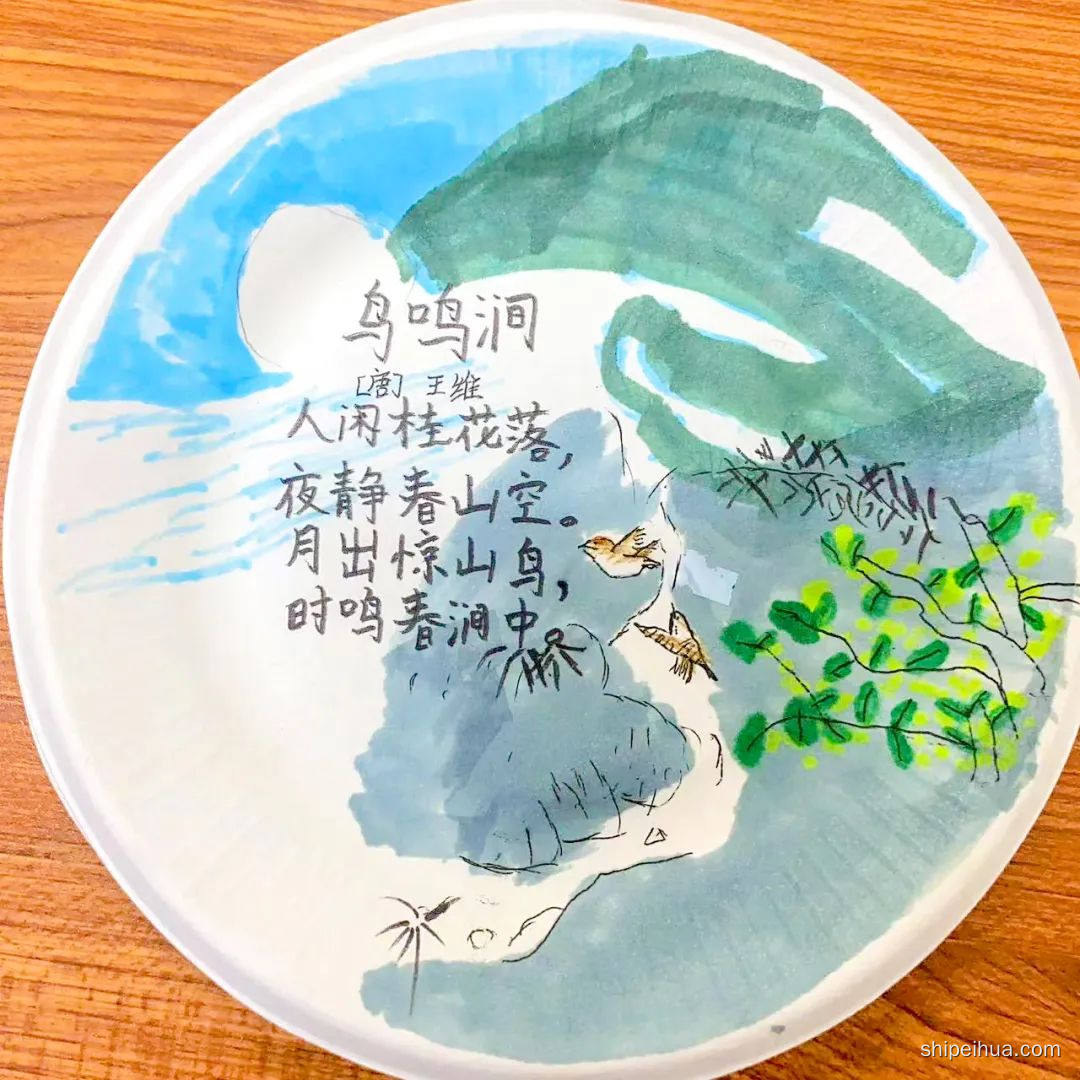 鸟鸣涧
[唐] 王维
人闲桂花落，
夜静春山空。
月出惊山鸟，
时鸣春涧中。
shipeihua.com